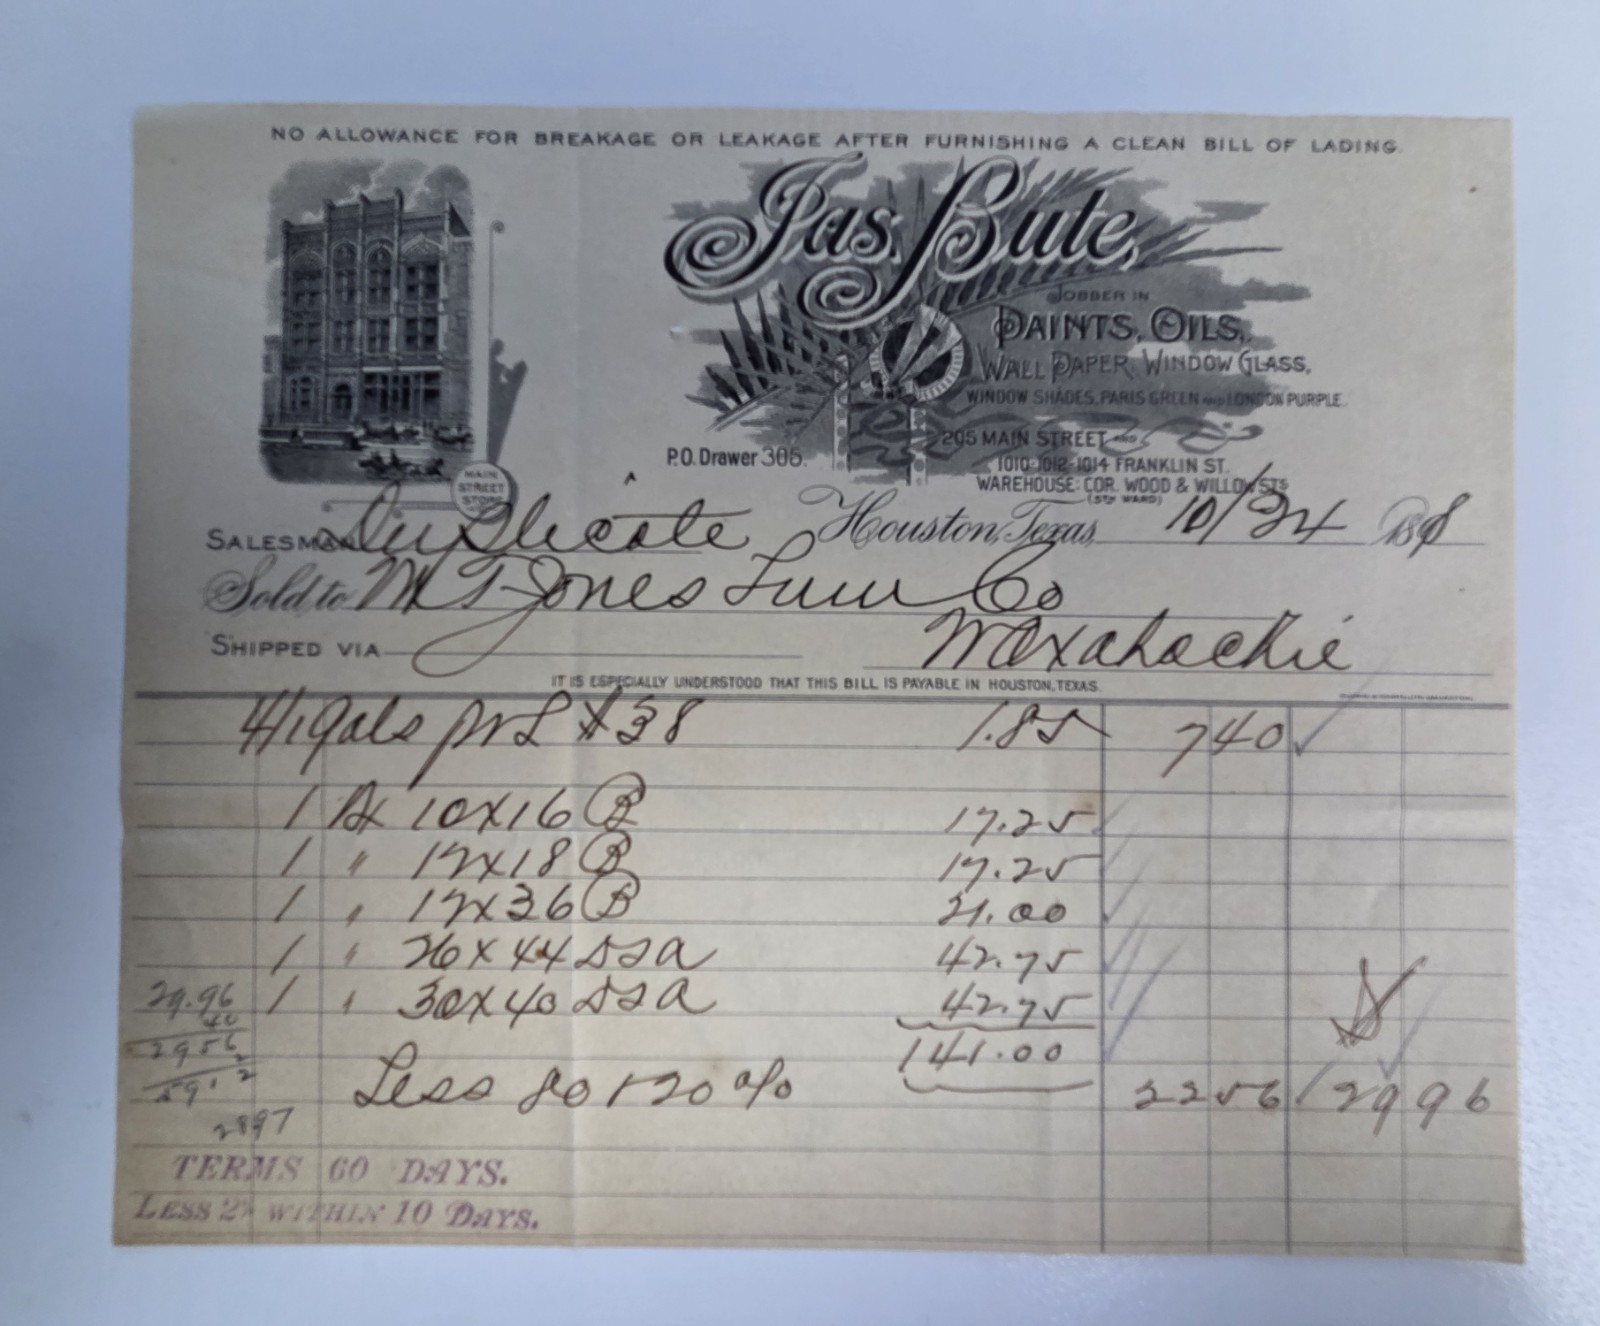 NO ALLOWANCE FOR BREAKAGE OR LEAKAGE AFTER FURNISHING A CLEAN BILL OF LADING.
Jas. Bute,
JOBBER IN
PAINTS, OILS,
WALL PAPER, WINDOW GLASS,
WINDOW SHADES, PARIS GREEN AND LONDON PURPLE.
205 MAIN STREET AND
P.O. Drawer 305.
1010-1012-1014 FRANKLIN ST.
WAREHOUSE: COR. WOOD & WILLOW STS
(5TH WARD)
MAIN STREET STORE
SALESMAN Duplicate Houston, Texas, 10/24 1898
Sold to M T Jones Lum Co
SHIPPED VIA Waxahachie
IT IS ESPECIALLY UNDERSTOOD THAT THIS BILL IS PAYABLE IN HOUSTON, TEXAS.
4/1 gals 38 1.85 7 40
1 10x16 B 17.25
1 " 12x18 B 17.25
1 " 12x36 B 21.00
1 " 26x44 SSA 42.75
29.96 1 " 30x40 SSA 42.75
40
2956 141.00
2
591 2 Less 80 + 20 % 22 56 29 96
2897
TERMS 60 DAYS.
LESS 2% WITHIN 10 DAYS.